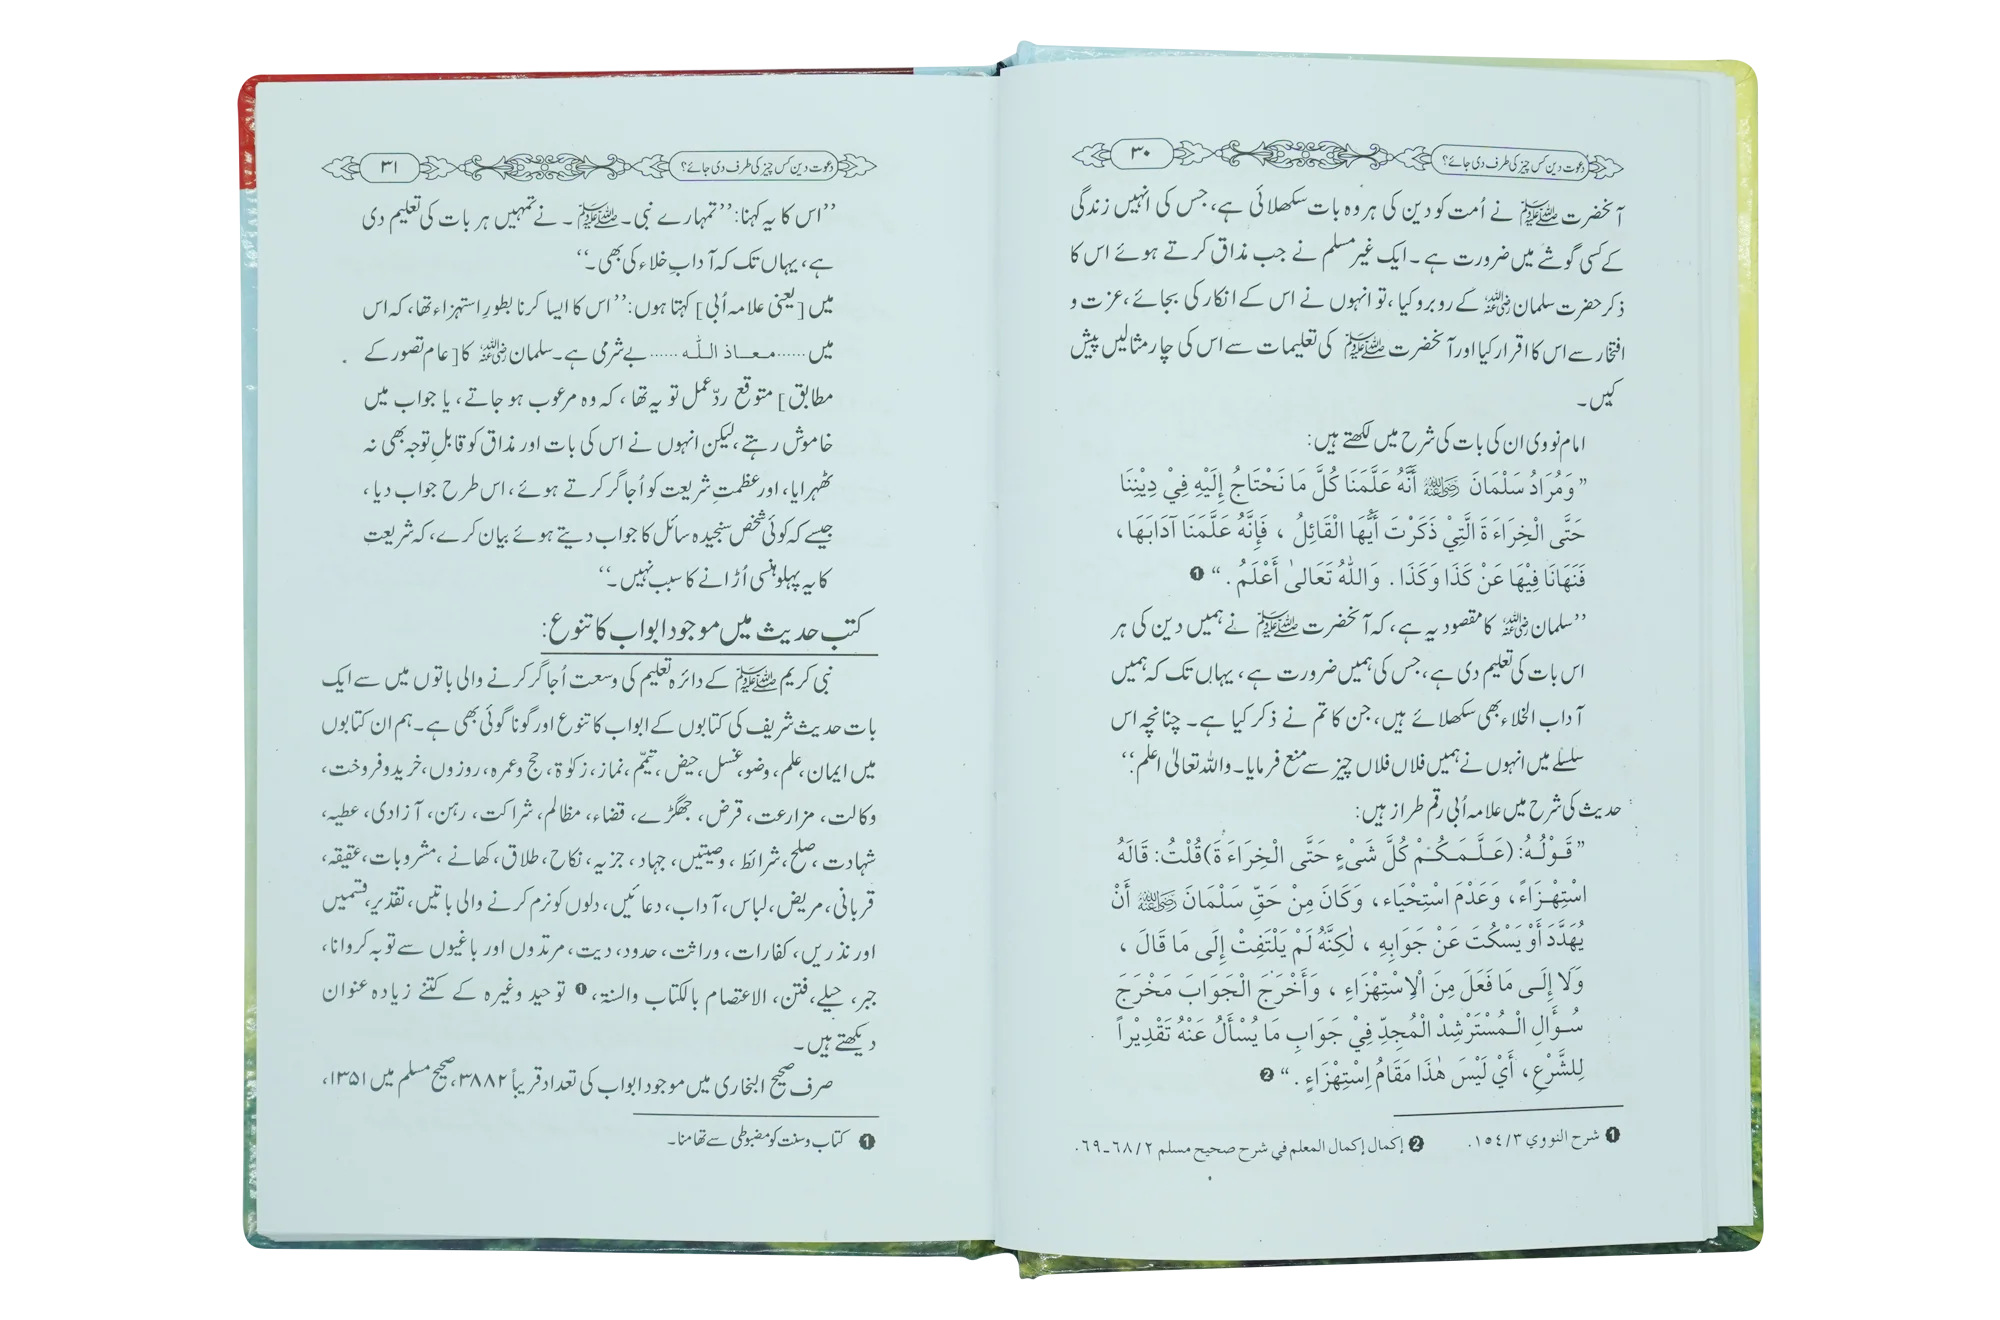 دعوت دین کس چیز کی طرف دی جائے؟ ۳۰
آنحضرت ﷺ نے اُمت کو دین کی ہر وہ بات سکھلائی ہے، جس کی انہیں زندگی
کے کسی گوشے میں ضرورت ہے۔ ایک غیر مسلم نے جب مذاق کرتے ہوئے اس کا
ذکر حضرت سلمان رضی اللہ عنہ کے روبرو کیا، تو انہوں نے اس کے انکار کی بجائے، عزت و
افتخار سے اس کا اقرار کیا اور آنحضرت ﷺ کی تعلیمات سے اس کی چار مثالیں پیش
کیں۔
امام نووی ان کی بات کی شرح میں لکھتے ہیں:
”وَمُرَادُ سَلْمَانَ رضی اللہ عنہ أَنَّهُ عَلَّمَنَا كُلَّ مَا نَحْتَاجُ إِلَيْهِ فِيْ دِيْنِنَا
حَتَّى الْخِرَاءَةَ الَّتِيْ ذَكَرْتَ أَيُّهَا الْقَائِلُ ، فَإِنَّهُ عَلَّمَنَا آدَابَهَا ،
فَنَهَانَا فِيْهَا عَنْ كَذَا وَكَذَا . وَاللّٰهُ تَعَالىٰ أَعْلَمُ . “ ❶
’’سلمان رضی اللہ عنہ کا مقصود یہ ہے، کہ آنحضرت ﷺ نے ہمیں دین کی ہر
اس بات کی تعلیم دی ہے، جس کی ہمیں ضرورت ہے، یہاں تک کہ ہمیں
آداب الخلاء بھی سکھلائے ہیں، جن کا تم نے ذکر کیا ہے۔ چنانچہ اس
سلسلے میں انہوں نے ہمیں فلاں فلاں چیز سے منع فرمایا۔ واللہ تعالیٰ اعلم.‘‘
حدیث کی شرح میں علامہ اُبی رقم طراز ہیں:
”قَوْلُهُ: (عَلَّمَكُمْ كُلَّ شَىْءٍ حَتَّى الْخِرَاءَةَ) قُلْتُ: قَالَهُ
اسْتِهْزَاءً ، وَعَدْمَ اسْتِحْيَاء ، وَكَانَ مِنْ حَقِّ سَلْمَانَ رضی اللہ عنہ أَنْ
يُهَدَّدَ أَوْ يَسْكُتَ عَنْ جَوَابِهِ ، لٰكِنَّهُ لَمْ يَلْتَفِتْ إِلَى مَا قَالَ ،
وَلَا إِلَى مَا فَعَلَ مِنَ الْاِسْتِهْزَاءِ ، وَأَخْرَجَ الْجَوَابَ مَخْرَجَ
سُؤَالِ الْمُسْتَرْشِدْ الْمُجِدِّ فِيْ جَوَابِ مَا يُسْأَلُ عَنْهُ تَقْدِيْراً
لِلشَّرْعِ ، أَيْ لَيْسَ هٰذَا مَقَامُ اِسْتِهْزَاءٍ . “ ❷
❶ شرح النووي ١٥٤/٣. ❷ إكمال إكمال المعلم في شرح صحيح مسلم ٦٨/٢-٦٩.
دعوت دین کس چیز کی طرف دی جائے؟ ۳۱
’’اس کا یہ کہنا: ’’تمہارے نبی۔ ﷺ۔ نے تمہیں ہر بات کی تعلیم دی
ہے، یہاں تک کہ آدابِ خلاء کی بھی۔‘‘
میں [یعنی علامہ اُبی] کہتا ہوں: ’’اس کا ایسا کرنا بطورِ استہزاء تھا، کہ اس
میں ......معاذ اللّٰه...... بے شرمی ہے۔ سلمان رضی اللہ عنہ کا [عام تصور کے
مطابق] متوقع ردّ عمل تو یہ تھا، کہ وہ مرعوب ہو جاتے، یا جواب میں
خاموش رہتے، لیکن انہوں نے اس کی بات اور مذاق کو قابلِ توجہ بھی نہ
ٹھہرایا، اور عظمتِ شریعت کو اُجاگر کرتے ہوئے، اس طرح جواب دیا،
جیسے کہ کوئی شخص سنجیدہ سائل کا جواب دیتے ہوئے بیان کرے، کہ شریعتِ
کا یہ پہلو ہنسی اُڑانے کا سبب نہیں۔‘‘
کتب حدیث میں موجود ابواب کا تنوع:
نبی کریم ﷺ کے دائرہ تعلیم کی وسعت اُجاگر کرنے والی باتوں میں سے ایک
بات حدیث شریف کی کتابوں کے ابواب کا تنوع اور گونا گوئی بھی ہے۔ ہم ان کتابوں
میں ایمان، علم، وضو، غسل، حیض، تیمّم، نماز، زکوٰۃ، حج و عمرہ، روزوں، خرید و فروخت،
وکالت، مزارعت، قرض، جھگڑے، قضاء، مظالم، شراکت، رہن، آزادی، عطیہ،
شہادت، صلح، شرائط، وصیتیں، جہاد، جزیہ، نکاح، طلاق، کھانے، مشروبات، عقیقہ،
قربانی، مریض، لباس، آداب، دعائیں، دلوں کو نرم کرنے والی باتیں، تقدیر، قسمیں
اور نذریں، کفارات، وراثت، حدود، دیت، مرتدوں اور باغیوں سے توبہ کروانا،
جبر، حیلے، فتن، الاعتصام بالکتاب والسنۃ، ❶ توحید وغیرہ کے کتنے زیادہ عنوان
دیکھتے ہیں۔
صرف صحیح البخاری میں موجود ابواب کی تعداد قریباً ۳۸۸۲، صحیح مسلم میں ۱۳۵۱،
❶ کتاب وسنت کو مضبوطی سے تھامنا۔